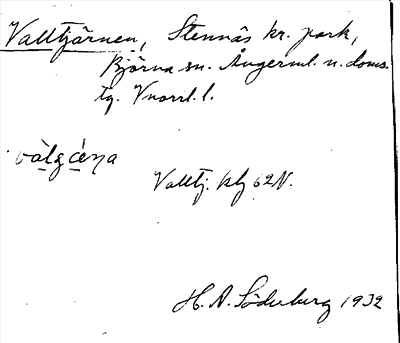 Valltjärnen, Stennäs kr. park,
Björna sn. Ångerml. n. doms.
tg. Vnorrl. l.
Valltj. kbl 62 N.
H. A. Söderberg 1932